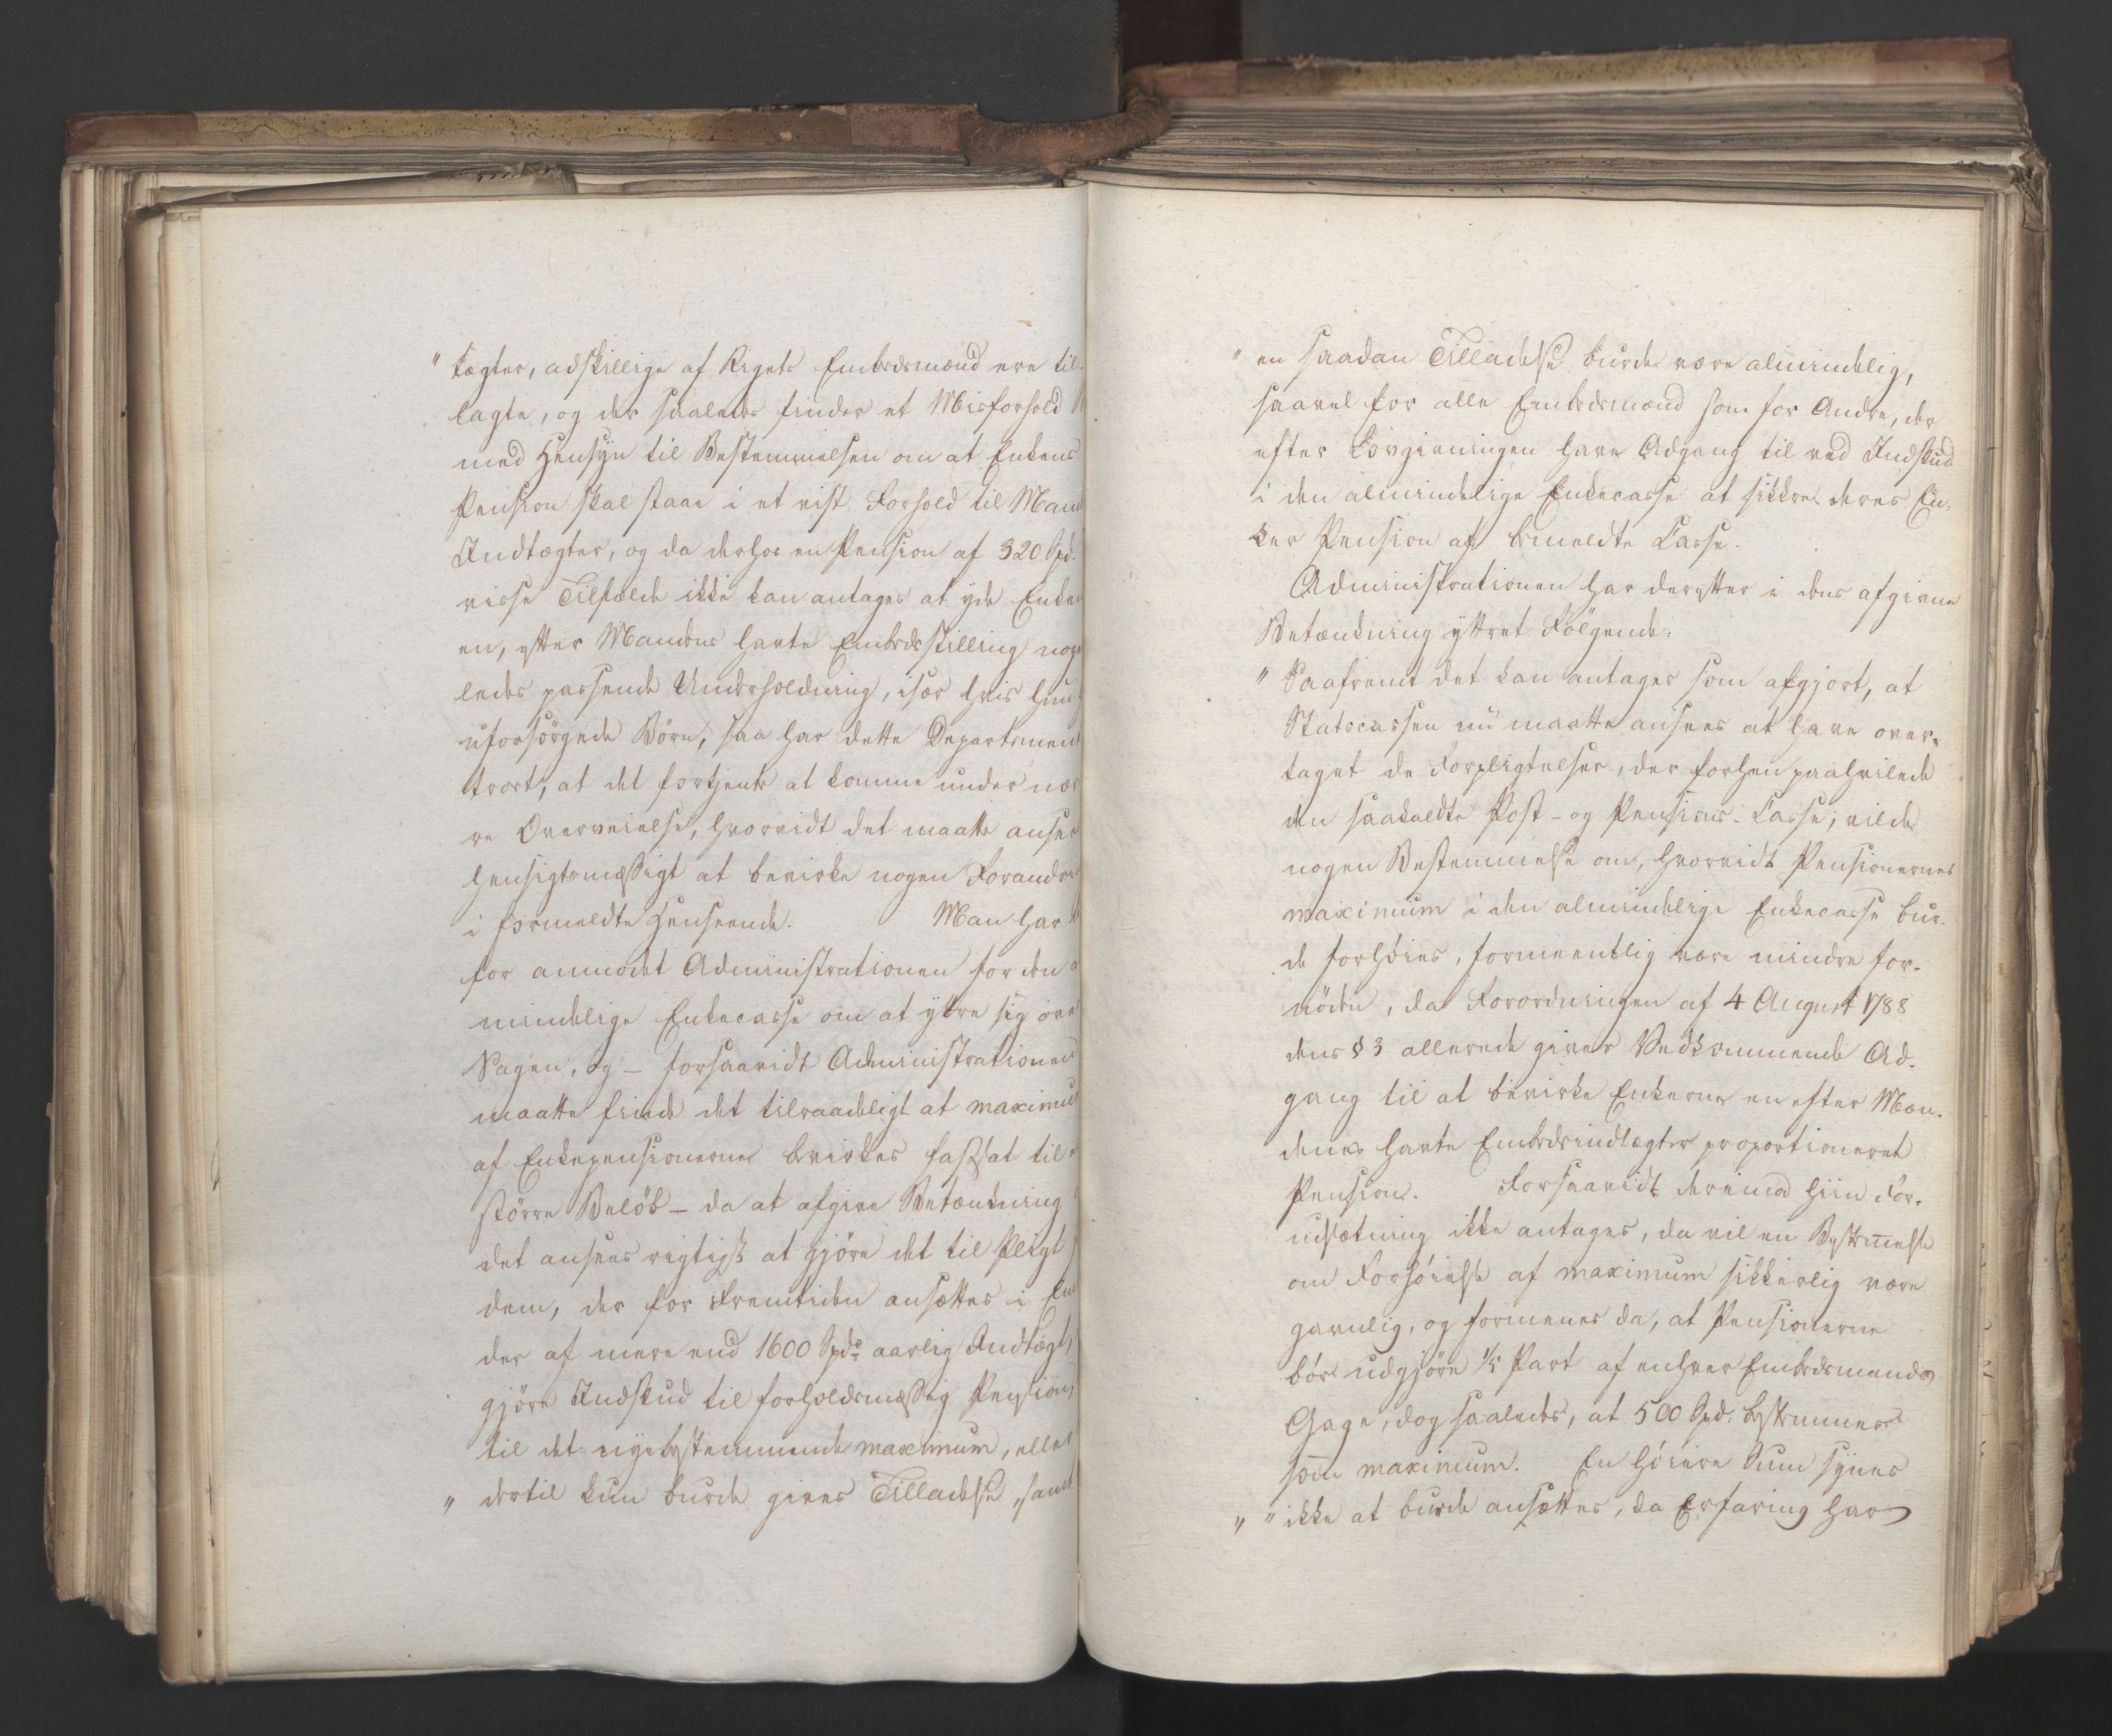 " tægter, adskillige af Rigets Embedsmænd ere til-
lagte, og der saaledes finder et Misforhold
med Hensyn til Bestemmelsen om at Enkens
Pension skal staae i et vist Forhold til Mand
Indtægter, og da derhos en Pension af 320 Spd.
visse Tilfælde ikke kan antages at yde Enke
en, efter Mandens havte Embedsstilling nog
ledes passende Underholdning, især hvis hun
uforsörgede Börn, saa har dette Departement
troet, at det fortjente at komme under nær
re Overveielse, hvorvidt det maatte ansee
hensigtsmæssigt at bevirke nogen Forandri
i formeldte Henseende. Man har
for anmodet Administrationen for den
mindelige Enkecasse om at yttre sig ove
Sagen, og – forsaavidt Administrationen
maatte finde det tilraadeligt at maximu
af Enkepensionerne bevirkes fastsat til
större Belöb – da at afgive Betænkning
det ansees rigtigst at gjöre det til Pligt
dem, der for Fremtiden ansættes i Em
der af mere end 1600 Spd. aarlig Indtægt,
gjöre Indskud til forholdsmæssig Pension
til det nyebestemmende maximum, eller
" dertil kun burde gives Tilladelse, samt
" en saadan Tilladelse burde være almindelig,
saavel for alle Embedsmænd som for Andre, der
efter Lovgivningen have Adgang til ved Indskud
i den almindelige Enkecasse at sikkre deres En-
ker Pension af bemeldte Casse.
Administrationen har derefter i dens afgivne
Betænkning yttret Fölgende:
" Saafremt det kan antages som afgjort, at
Statscassen nu maatte ansees at have over-
taget de Forpligtelser, der forhen paahvilede
den saakaldte Post- og Pensions-Casse, vilde
nogen Bestemmelse om, hvorvidt Pensionernes
maximum i den almindelige Enkecasse bur-
de forhöies, formeentlig være mindre for-
nöden, da Forordningen af 4 August 1788
dens § 3 allerede giver Vedkommende Ad-
gang til at bevirke Enkerne en efter Mæn-
denes havte Embedsindtægter proportioneret
Pension. Forsaavidt derimod hiin For-
udsætning ikke antages, da vil en Bestemmelse
om Forhöielse af maximum sikkerlig være
gavnlig, og formenes da, at Pensionerne
bör udgjöre 1/5 Part af enhver Embedsmands
Gage, dog saaledes, at 500 Spd. bestemmes
som maximum. En höiere Sum synes
" " ikke at burde ansættes, da Erfaring har